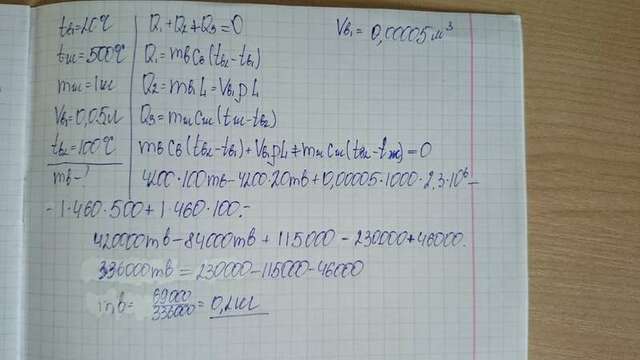 tв₁=20°C
tж=500°C
mж=1кг
Vв₁=0,05л
tв₂=100°C
mв-?
Q₁+Q₂+Q₃=0
Q₁=mвCв(tв₂-tв₁)
Q₂=mв₁L=Vв₁ρL
Q₃=mжCж(tж-tв₂)
mвCв(tв₂-tв₁)+Vв₁ρL+mжCж(tв₂-tж)=0
4200·100mв-4200·20mв+0,00005·1000·2,3·10⁶-
-1·460·500+1·460·100.-
420000mв-84000mв+115000-230000+46000.
336000mв=230000-115000-46000
mв=69000/336000=0,2кг
Vв₁=0,00005м³